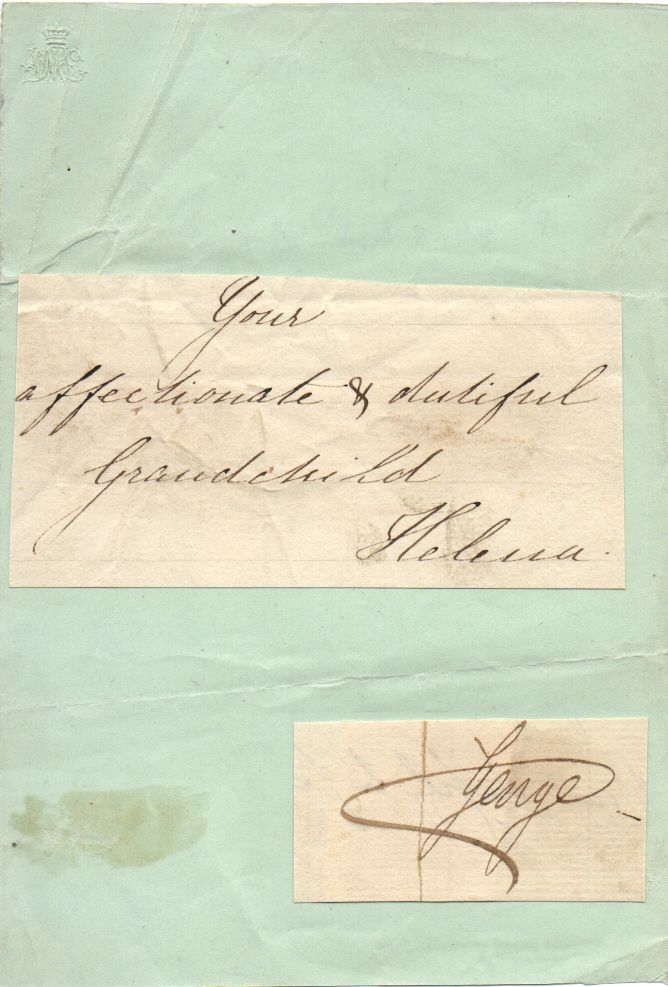 Your
affectionate & dutiful
Grandchild
Helena.
George